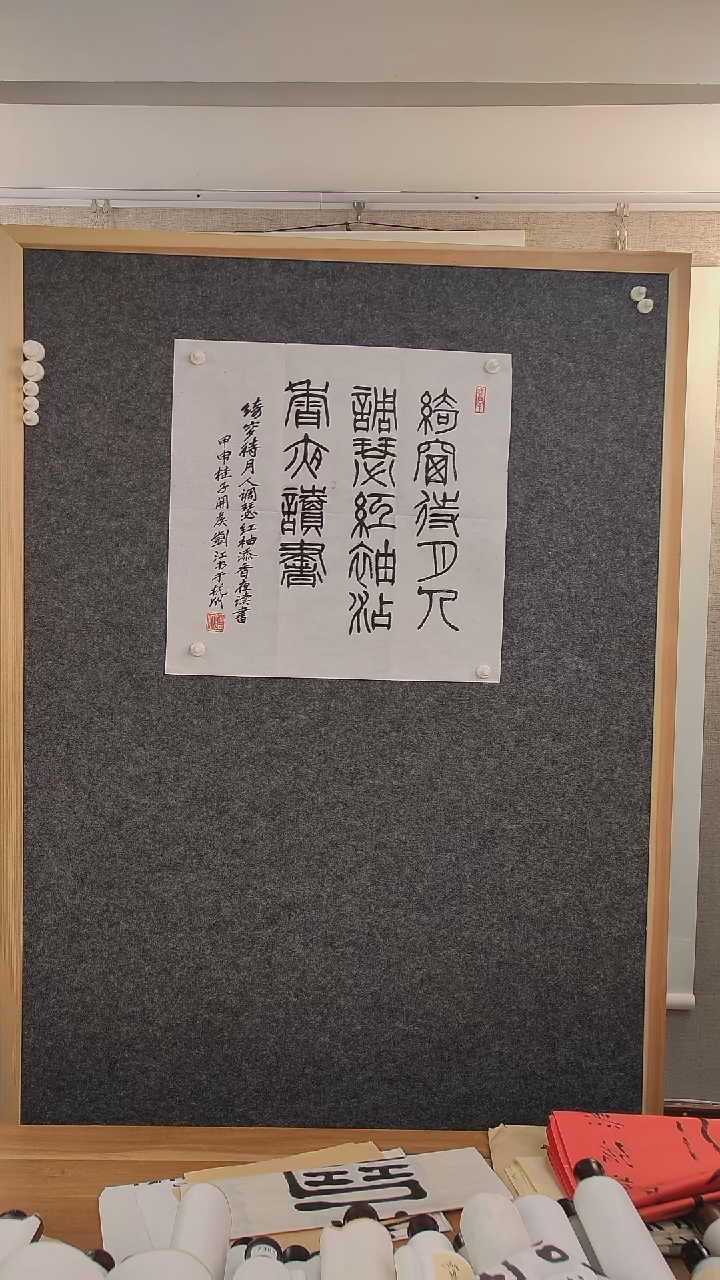 綺窗待月人
調瑟紅袖沾
香夜讀書
綺窗待月人调瑟红袖添香夜读書
甲申桂子開候劉江书于杭州